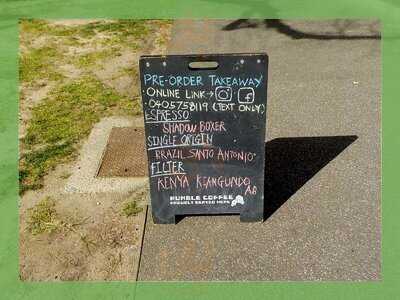 PRE-ORDER TAKEAWAY
• ONLINE LINK →
• 0405758119 (TEXT ONLY)
ESPRESSO
SHADOW BOXER
SINGLE ORIGIN
BRAZIL SANTO ANTONIO
FILTER
KENYA KIANGUNDO
AB
RUMBLE COFFEE
PROUDLY SERVED HERE